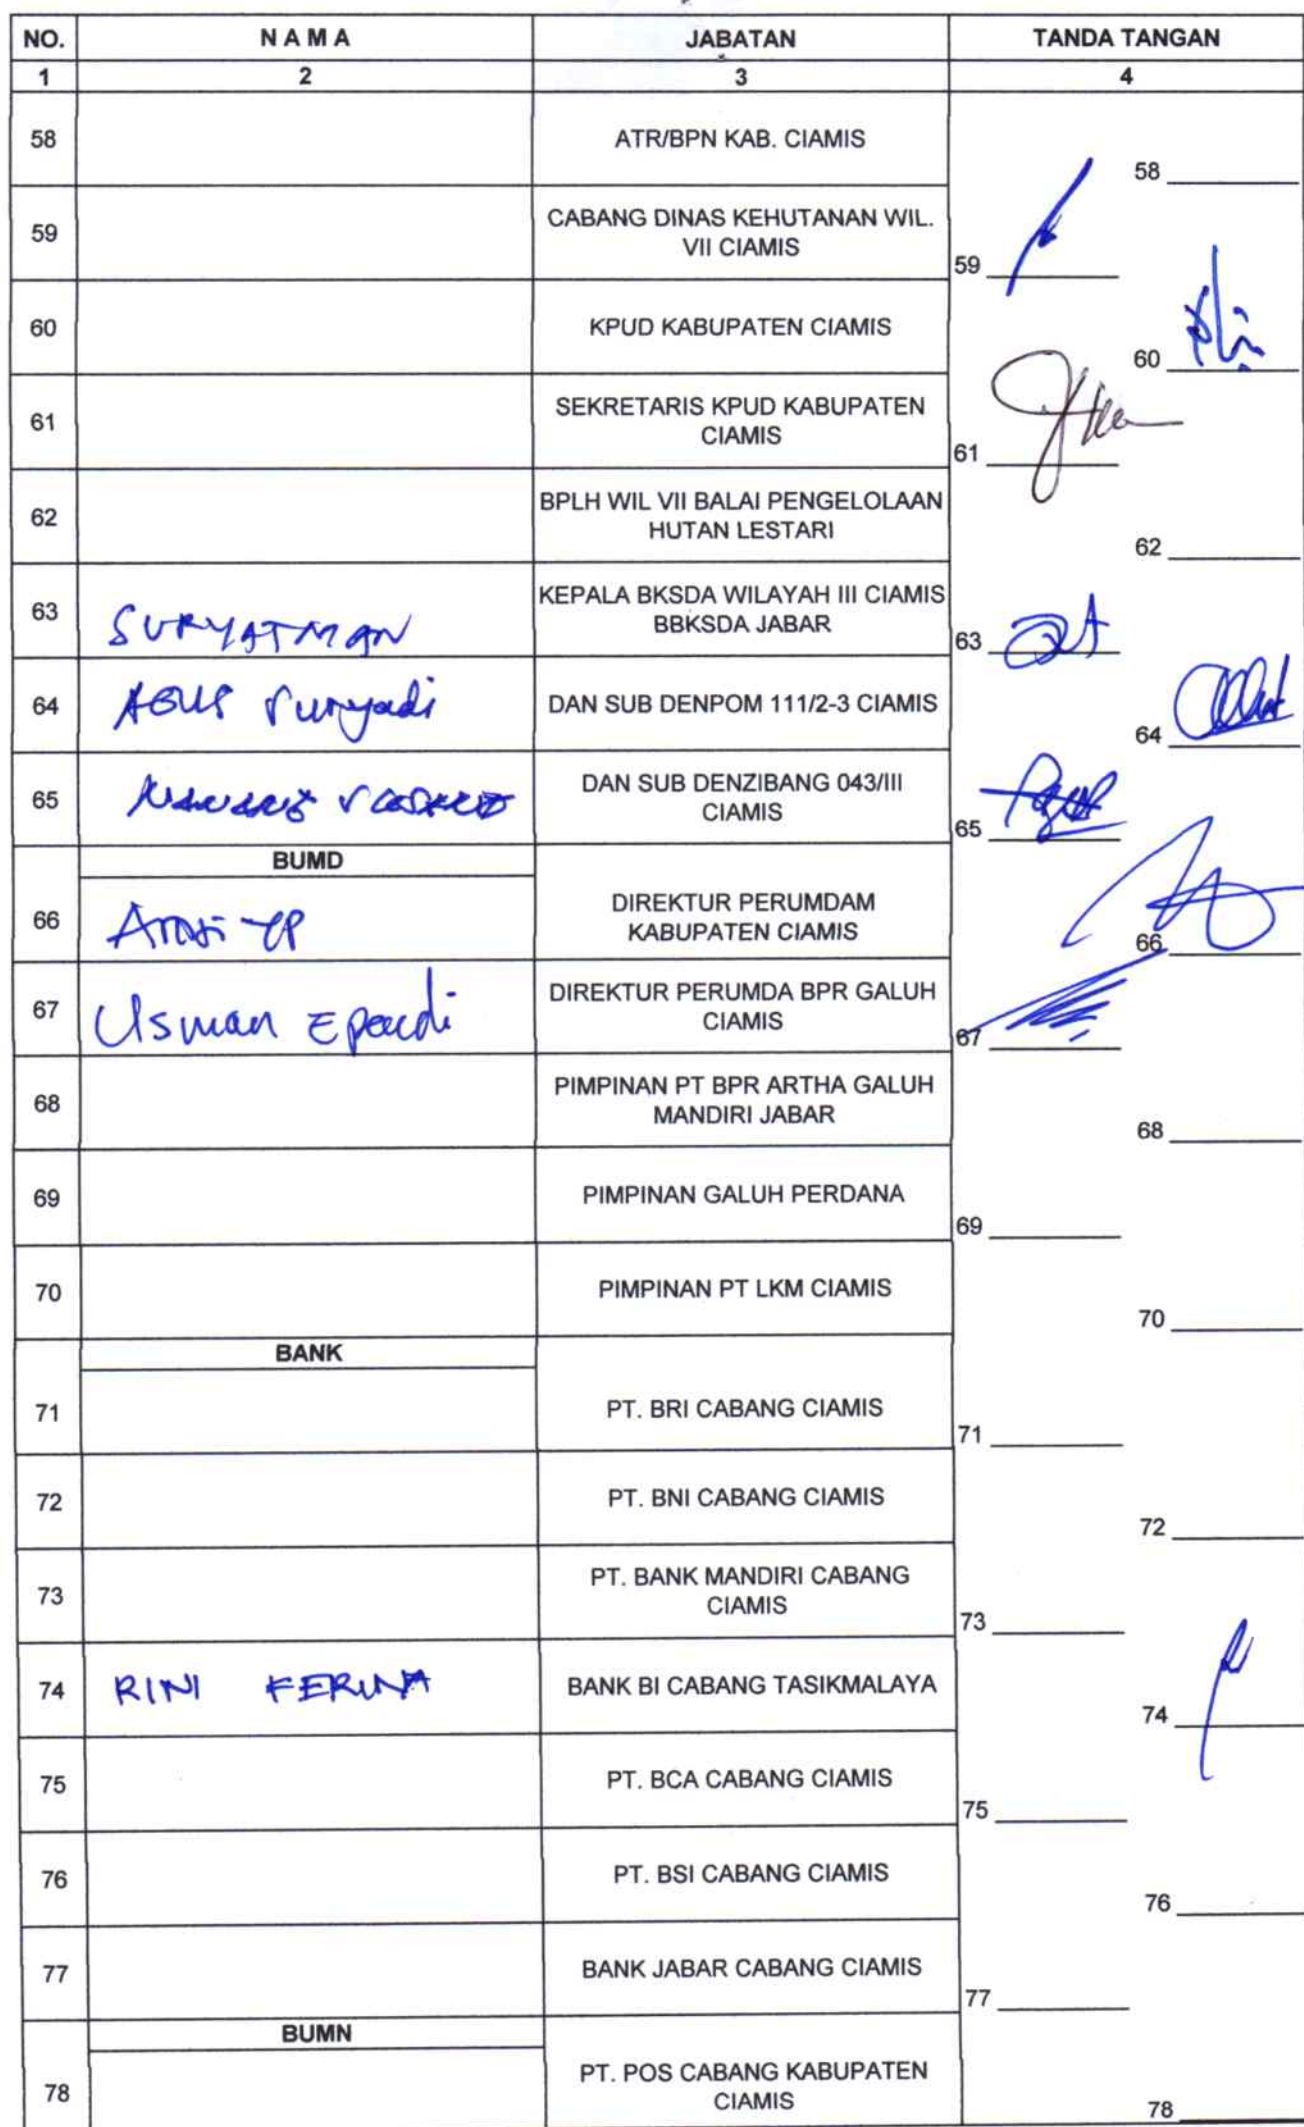 NO. N A M A JABATAN TANDA TANGAN
1 2 3 4
58 ATR/BPN KAB. CIAMIS 58
59 CABANG DINAS KEHUTANAN WIL.
VII CIAMIS 59
60 KPUD KABUPATEN CIAMIS 60
61 SEKRETARIS KPUD KABUPATEN
CIAMIS 61
62 BPLH WIL VII BALAI PENGELOLAAN
HUTAN LESTARI 62
63 SURYATMAN KEPALA BKSDA WILAYAH III CIAMIS
BBKSDA JABAR 63
64 AGUS Suryadi DAN SUB DENPOM 111/2-3 CIAMIS 64
65 DAN SUB DENZIBANG 043/III
CIAMIS 65
BUMD
66 DIREKTUR PERUMDAM
KABUPATEN CIAMIS 66
67 Usman Ependi DIREKTUR PERUMDA BPR GALUH
CIAMIS 67
68 PIMPINAN PT BPR ARTHA GALUH
MANDIRI JABAR 68
69 PIMPINAN GALUH PERDANA 69
70 PIMPINAN PT LKM CIAMIS 70
BANK
71 PT. BRI CABANG CIAMIS 71
72 PT. BNI CABANG CIAMIS 72
73 PT. BANK MANDIRI CABANG
CIAMIS 73
74 RINI FERINA BANK BI CABANG TASIKMALAYA 74
75 PT. BCA CABANG CIAMIS 75
76 PT. BSI CABANG CIAMIS 76
77 BANK JABAR CABANG CIAMIS 77
BUMN
78 PT. POS CABANG KABUPATEN
CIAMIS 78